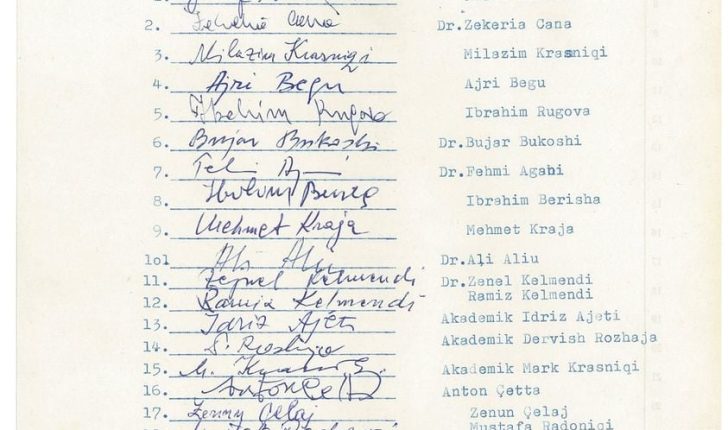 2. Zekeria Cana Dr.Zekeria Cana
3. Milazim Krasniqi Milazim Krasniqi
4. Ajri Begu Ajri Begu
5. Ibrahim Rugova Ibrahim Rugova
6. Bujar Bukoshi Dr.Bujar Bukoshi
7. Dr.Fehmi Agani
8. Ibrahim Berisha
9. Mehmet Kraja Mehmet Kraja
10. Ali Aliu Dr.Ali Aliu
11. Zejnel Kelmendi Dr.Zenel Kelmendi
12. Ramiz Kelmendi Ramiz Kelmendi
13. Idriz Ajeti Akademik Idriz Ajeti
14. D. Rozhaja Akademik Dervish Rozhaja
15. Akademik Mark Krasniqi
16. Anton Çetta
17. Zenun Çelaj Zenun Çelaj
Mustafa Radoniqi